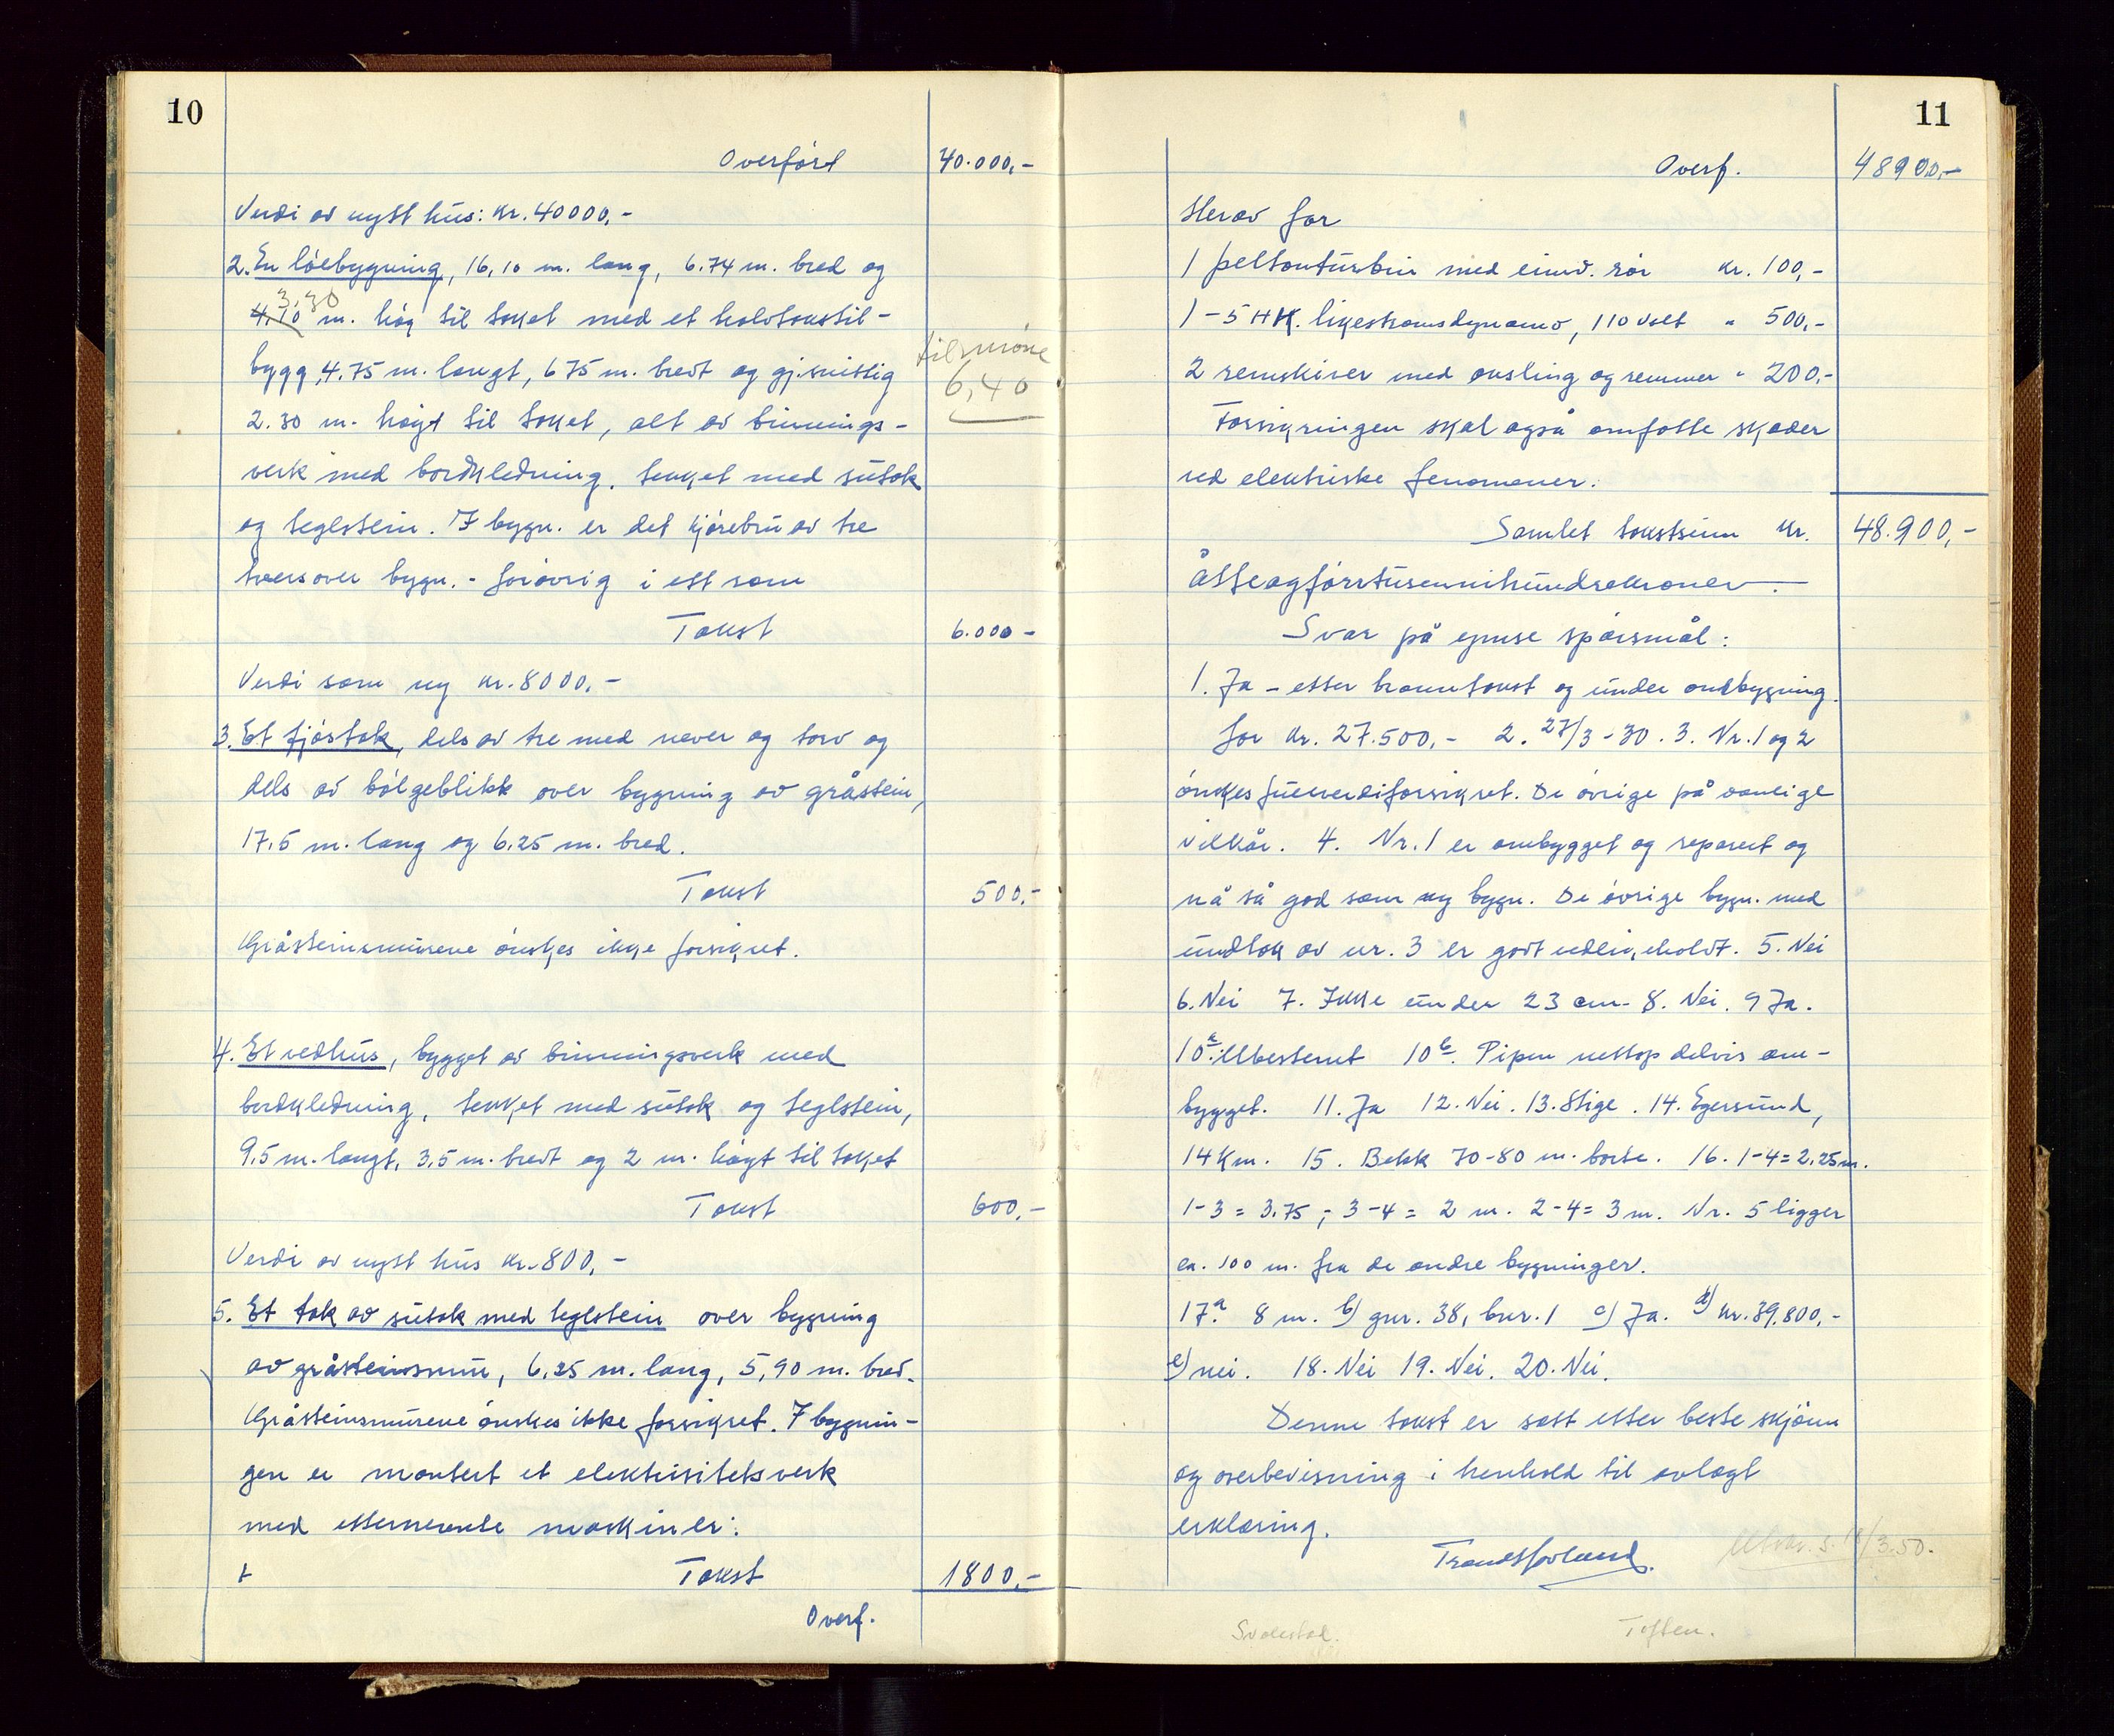 10
Overført 40.000,-
Verdi av nytt hus: kr. 40000,-
2. En löebygning, 16,10 m. lang, 6.74 m. bred og
3.30
4.10 m. høg til taket med et halvtakstil-
bygg, 4.75 m. langt, 675 m. bredt og gj.snittlig
til møne
6,40
2.30 m. høgt til taket, alt av binnings-
verk med bordkledning, tekket med sutak
og teglstein. I bygn. er det kjørebru av tre
tvers over bygn. - forøvrig i ett rom
Takst 6.000-
Verdi som ny kr. 8000,-
3. Et fjöstak, dels av tre med never og torv og
dels av bölgeblikk over bygning av gråstein,
17,5 m. lang og 6,25 m. bred.
Takst 500,-
Gråsteinsmurene önskes ikke forsikret.
4. Et vedhus, bygget av binningsverk med
bordkledning, tekket med sutak og teglstein,
9,5 m. langt, 3,5 m. bredt og 2 m. høgt til taket
Takst 600,-
Verdi av nytt hus kr. 800,-
5. Et tak av sutak med teglstein over bygning
av gråsteinsmur, 6,25 m. lang, 5,90 m. bred.
Gråsteinsmurene önskes ikke forsikret. I bygnin-
gen er montert et elektrisitetsverk
med etternevnte maskiner:
Takst 1800,-
Overf.
11
Overf. 48900,-
Herav for
1 peltonturbin med rör kr. 100,-
1 - 5 HK. likestrømsdynamo, 110 volt " 500,-
2 remskiver med aksling og remmer " 200,-
Forsikringen skal også omfatte skader
ved elektriske fenomener.
Samlet takstsum kr. 48.900,-
åtteogførrtusennihundrekroner.
Svar på ymse spørsmål:
1. Ja - etter branntakst og under ombygning
for kr. 27.500,- 2. 27/3-30. 3. Nr. 1 og 2
önskes fullverdiforsikret. De övrige på vanlige
vilkår. 4. Nr. 1 er ombygget og reparert og
nå så god som ny bygn. De övrige bygn. med
undtak av nr. 3 er godt vedlikeholdt. 5. Nei
6. Nei 7. Ikke under 23 cm. 8. Nei. 9 Ja.
10a. Ubestemt 10b. Pipen nettop delvis om-
bygget. 11. Ja 12. Nei. 13. Stige. 14. Egersund,
14 km. 15. Bekk 70-80 m. borte. 16. 1-4=2.25m.
1-3 = 3.75; 3-4 = 2 m. 2-4= 3 m. Nr. 5 ligger
ca. 100 m. fra de andre bygninger.
17a. 8 m. b) gnr. 38, bnr. 1 c) Ja. d) kr. 39.800,-
e) nei. 18. Nei 19. Nei. 20. Nei.
Denne takst er satt etter beste skjönn
og overbevisning i henhold til avlagt
erklæring.
Trond Hovland.
3.50.
Svalestad. Toften.